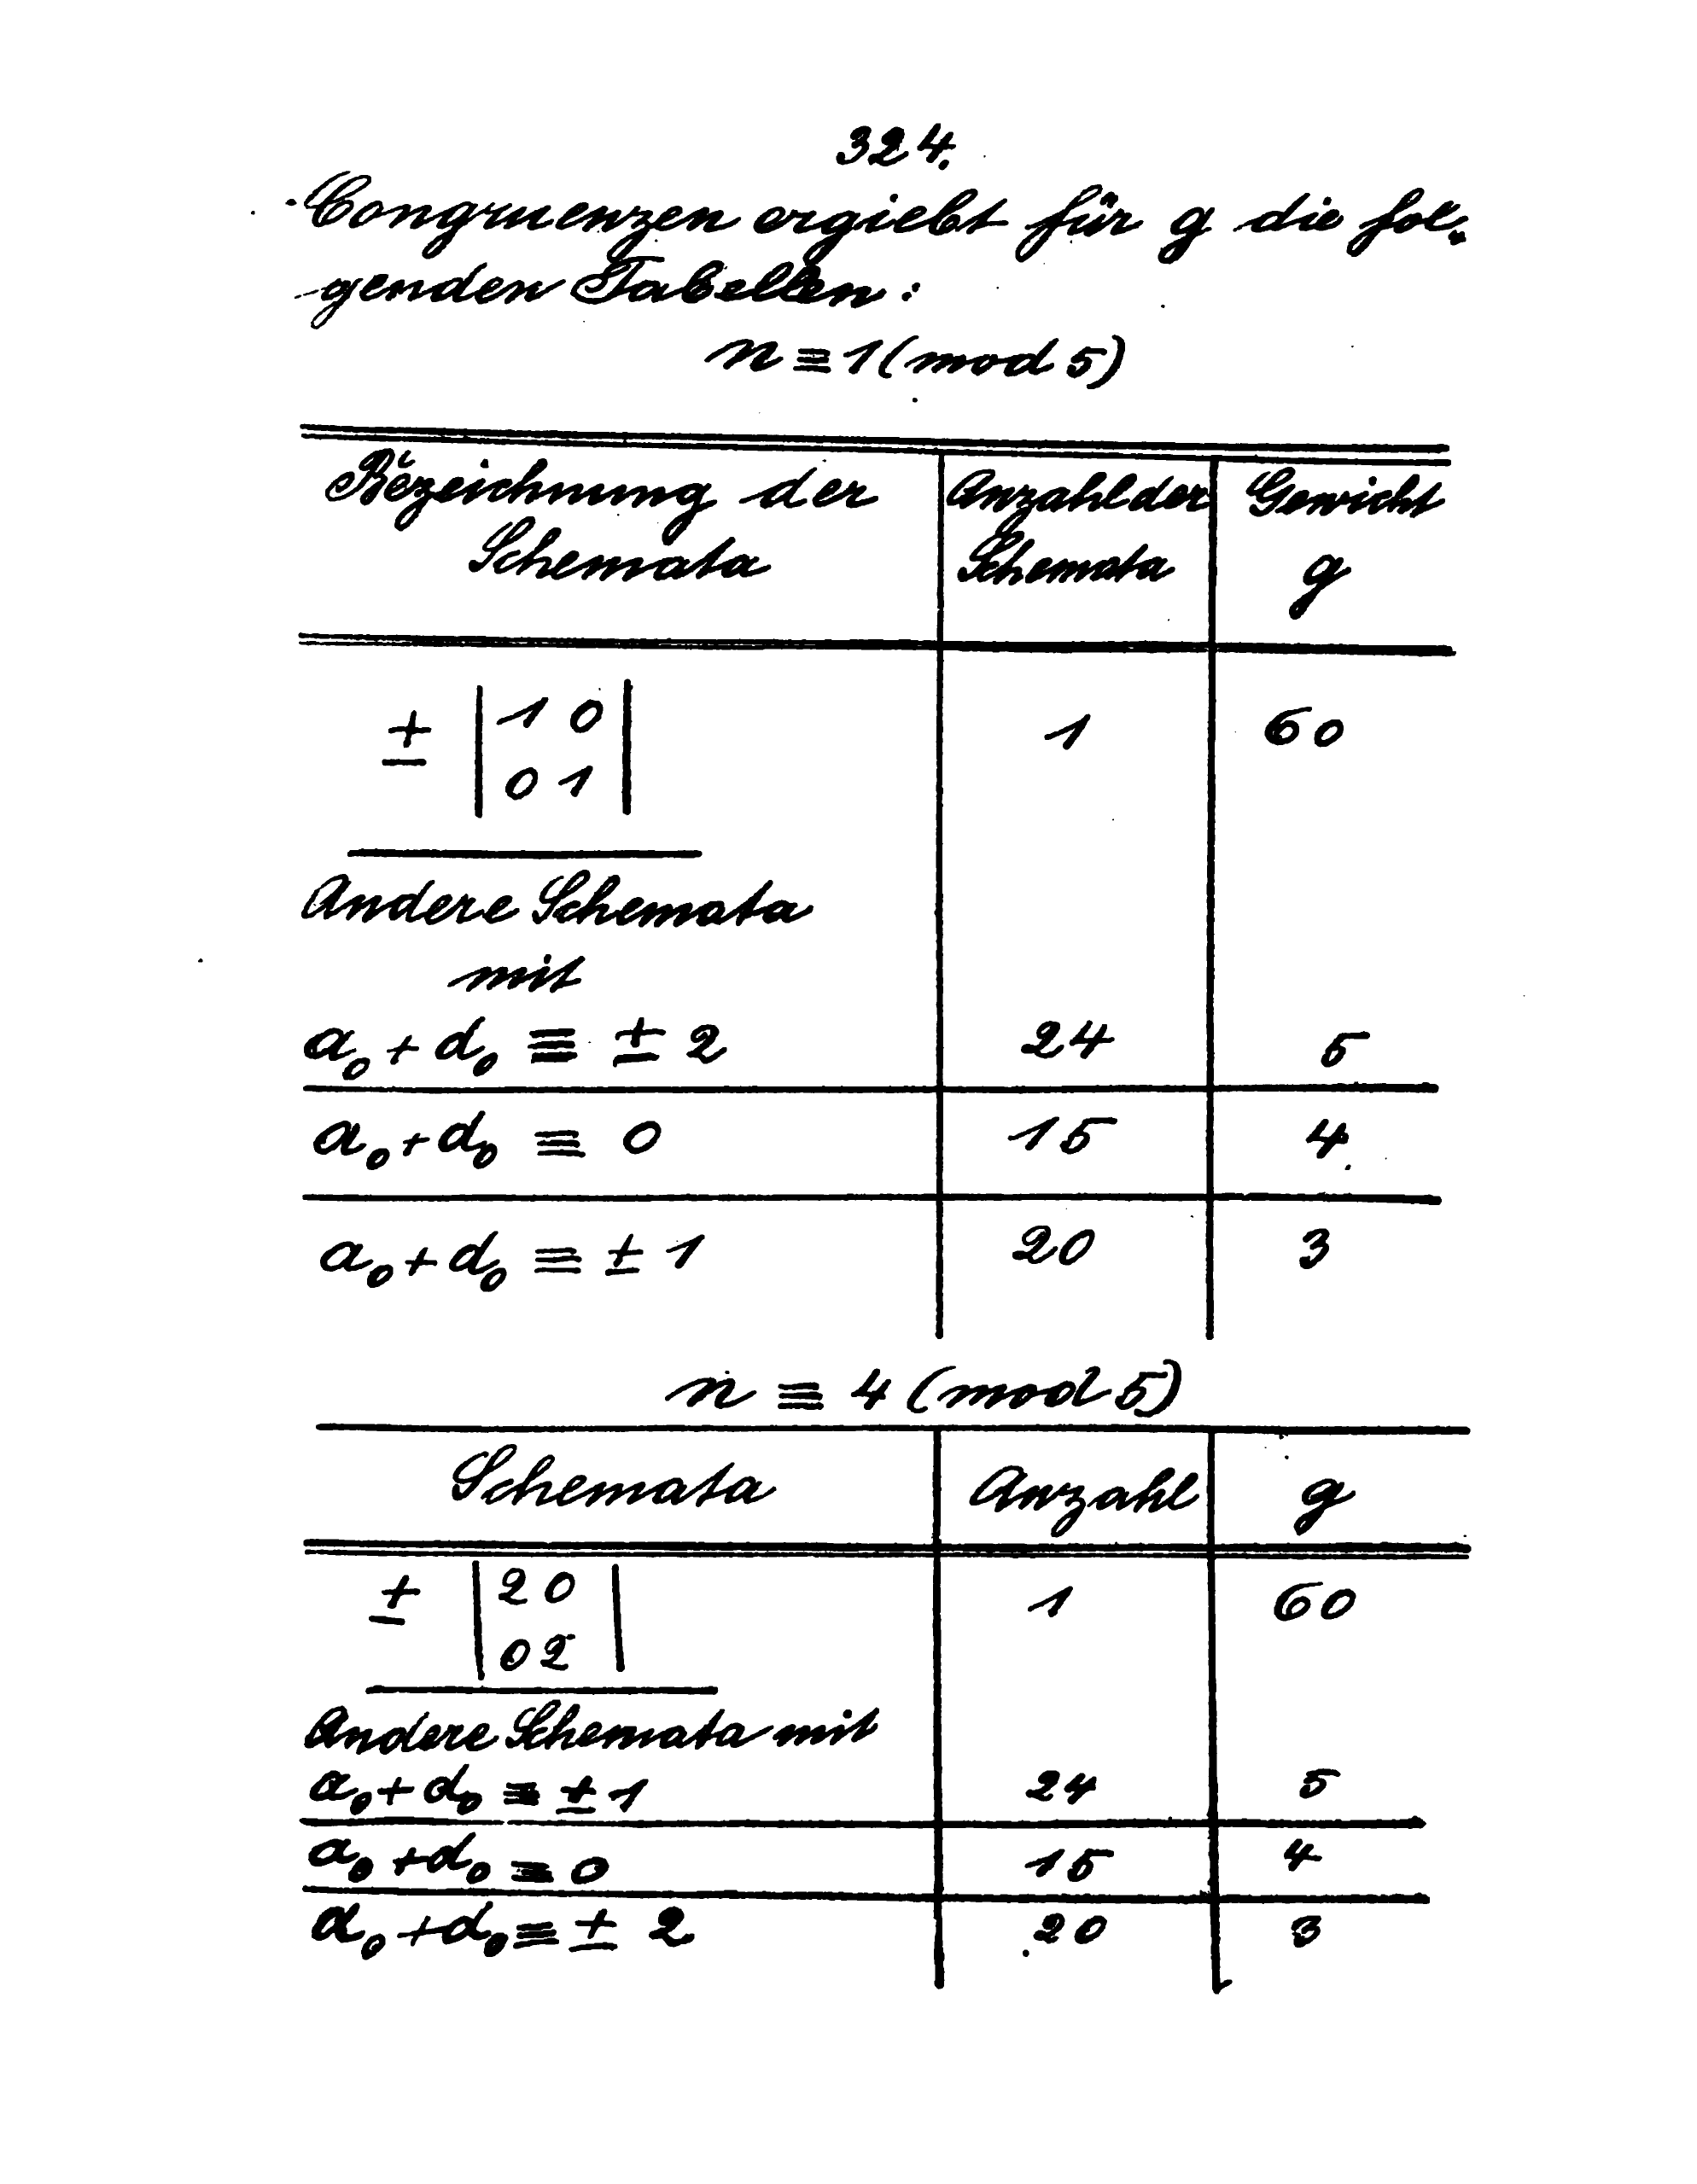 324.
Congruenzen ergiebt für g die fol„
genden Tabellen:
n ≡ 1 (mod 5)
Bezeichnung der Schemata | Anzahl der Schemata | Gewicht g
± | 1 0 | 1 60
| 0 1 |
Andere Schemata
mit
a₀ + d₀ ≡ ± 2 24 5
a₀ + d₀ ≡ 0 15 4
a₀ + d₀ ≡ ± 1 20 3
n ≡ 4 (mod 5)
Schemata Anzahl g
± | 2 0 | 1 60
| 0 2 |
Andere Schemata mit
a₀ + d₀ ≡ ± 1 24 5
a₀ + d₀ ≡ 0 15 4
a₀ + d₀ ≡ ± 2 20 3